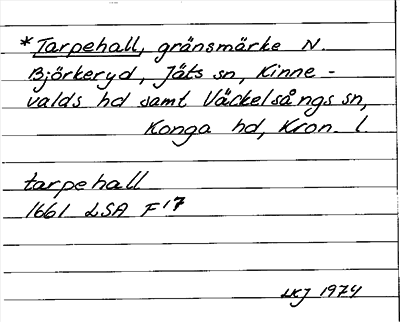 *Tarpehall, gränsmärke N.
Björkeryd, Jäts sn, Kinne-
valds hd samt Väckelsångs sn,
Konga hd, Kron. l.
tarpehall
1661 LSA F 17
LKJ 1974